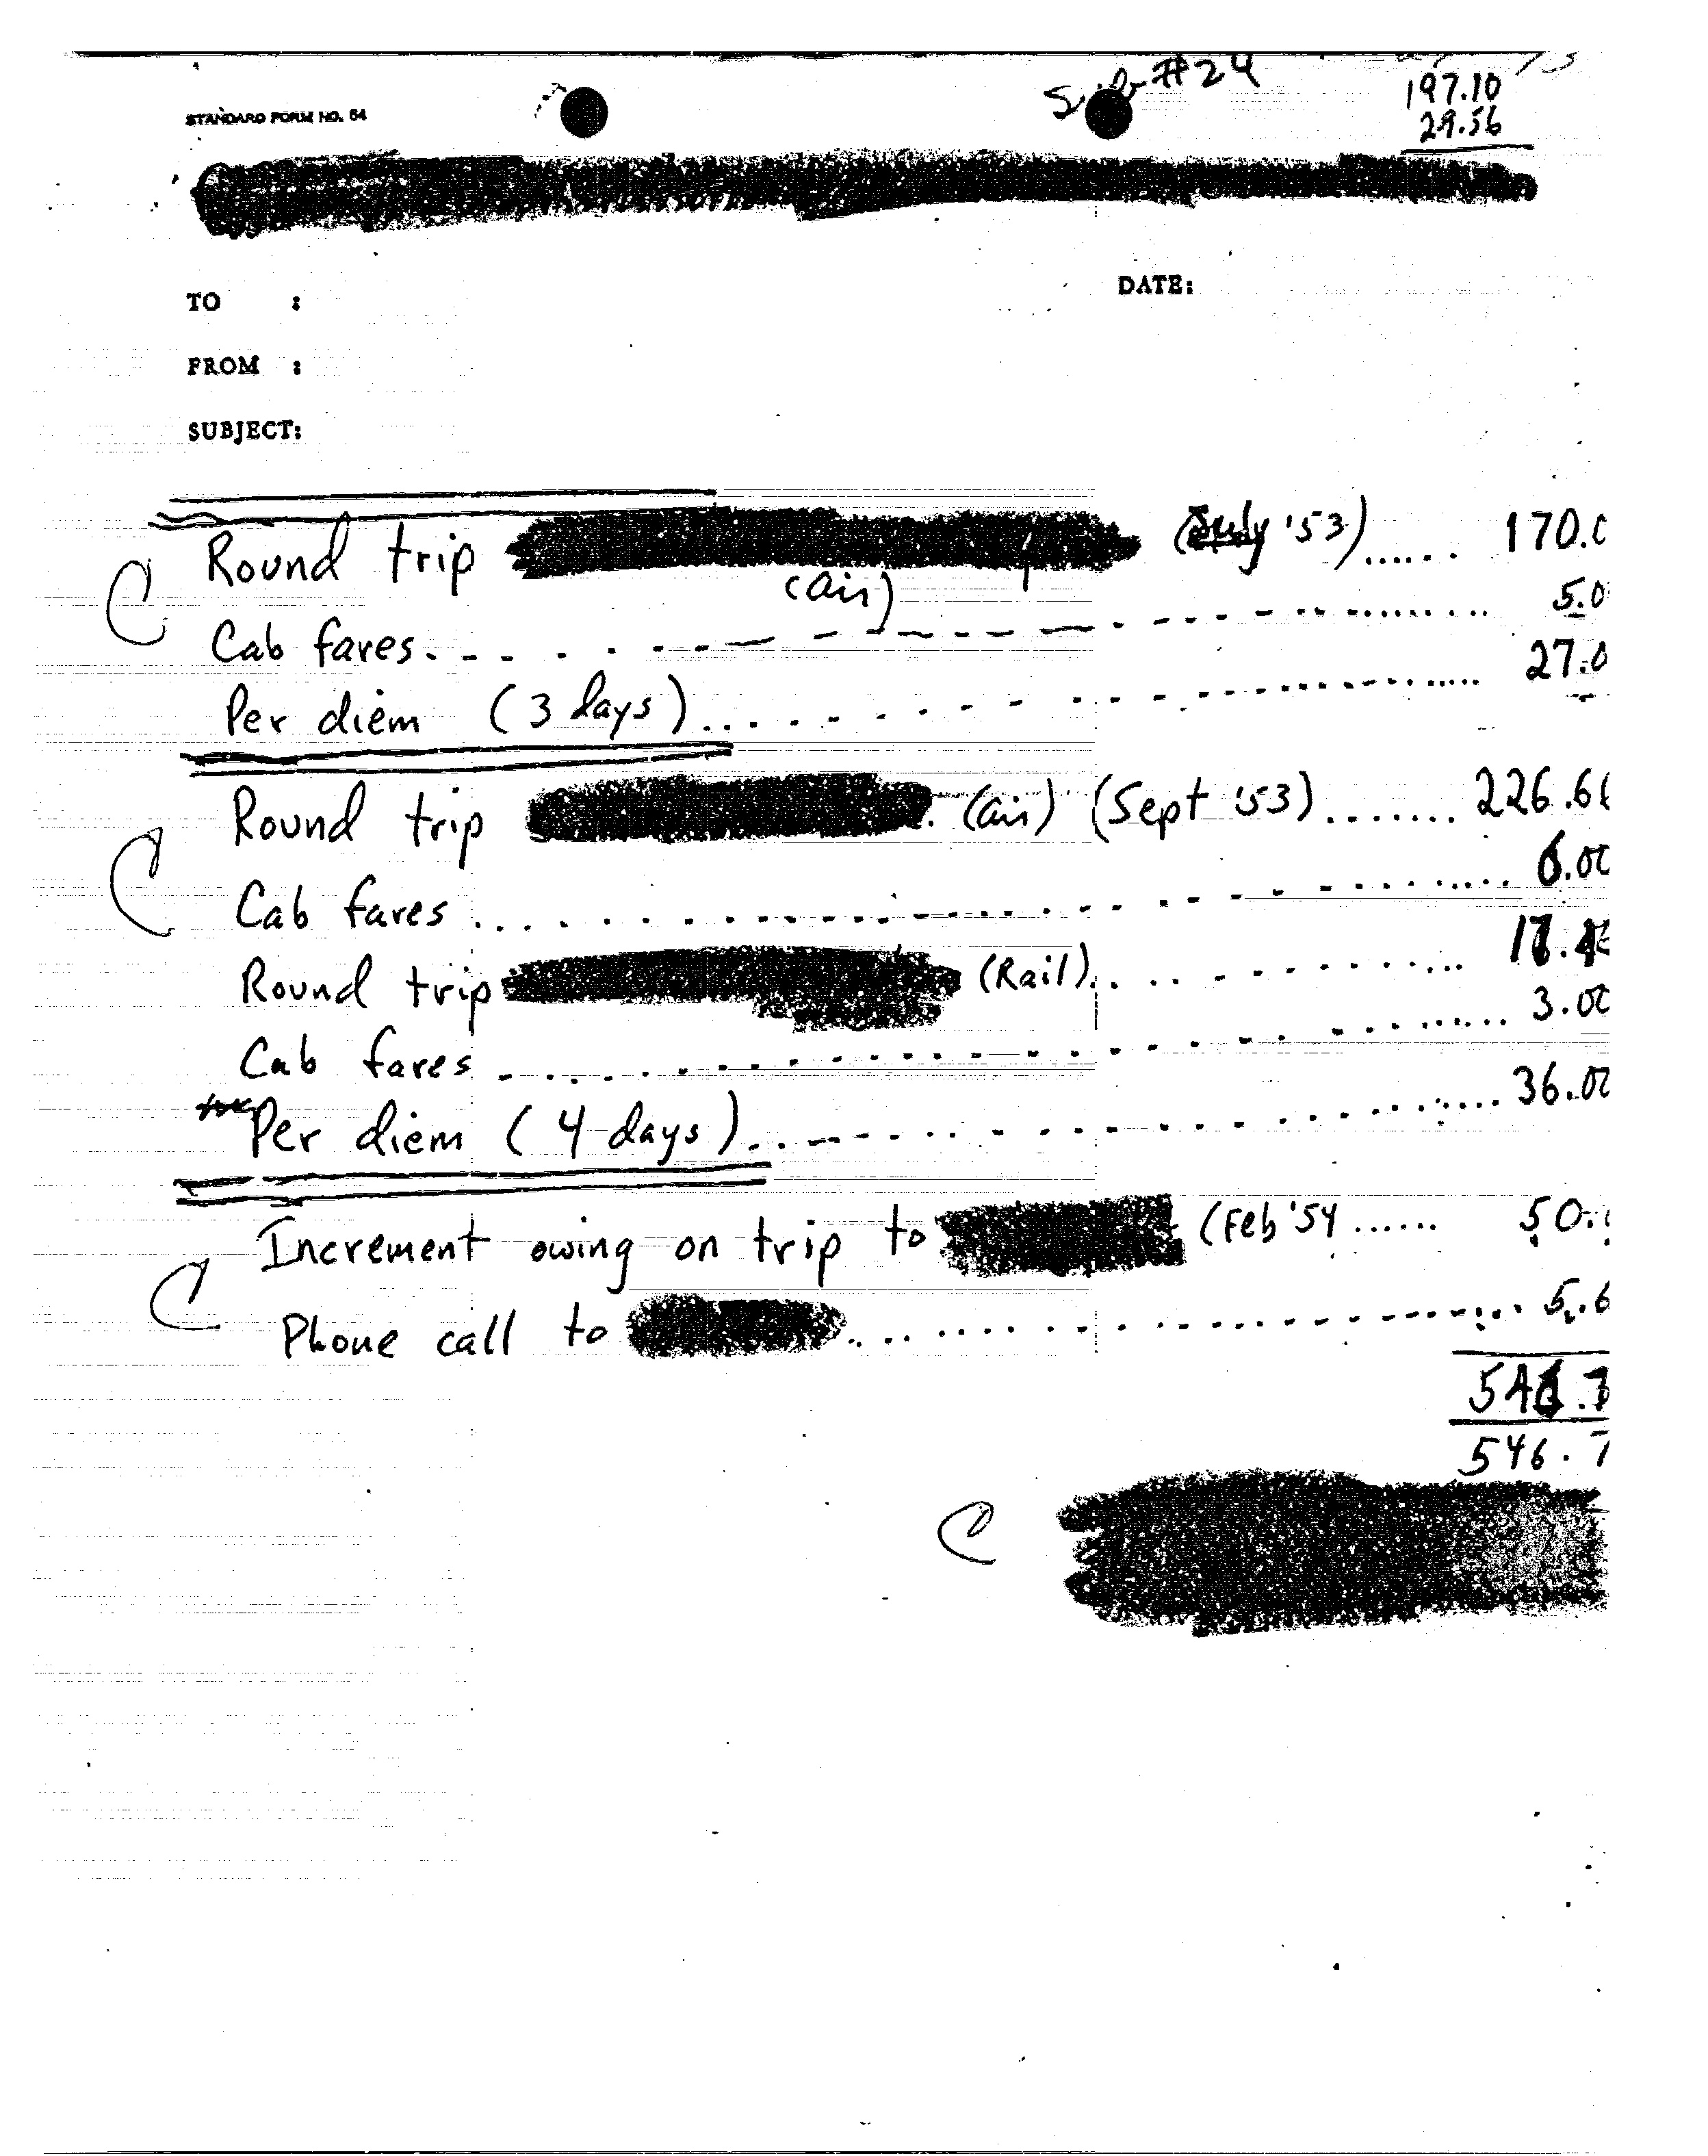 #24
197.10
29.56
STANDARD FORM NO. 64
TO :
DATE:
FROM :
SUBJECT:
Round trip (July '53)...... 170.0
(air)
Cab fares. 5.0
Per diem (3 days) 27.0
Round trip (air) (Sept '53)....... 226.66
Cab fares 6.00
Round trip (Rail)
Cab fares 3.00
Per diem (4 days) 36.00
Increment owing on trip to (Feb '54 ...... 50.
Phone call to 5.6
546.7